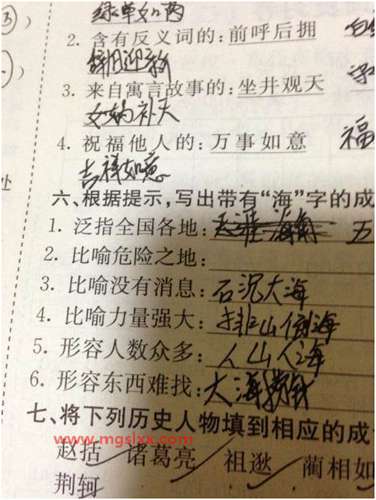 ③
绿草如茵
2. 含有反义词的:前呼后拥
辞旧迎新
3. 来自寓言故事的:坐井观天
女娲补天
4. 祝福他人的:万事如意 福
吉祥如意
处
六、根据提示,写出带有“海”字的成
1. 泛指全国各地: 五
2. 比喻危险之地:
3. 比喻没有消息:石沉大海
4. 比喻力量强大:排山倒海
5. 形容人数众多:人山人海
6. 形容东西难找:大海捞针
七、将下列历史人物填到相应的成
www.mgslxx.com
赵括 诸葛亮 祖逖 蔺相如
荆轲